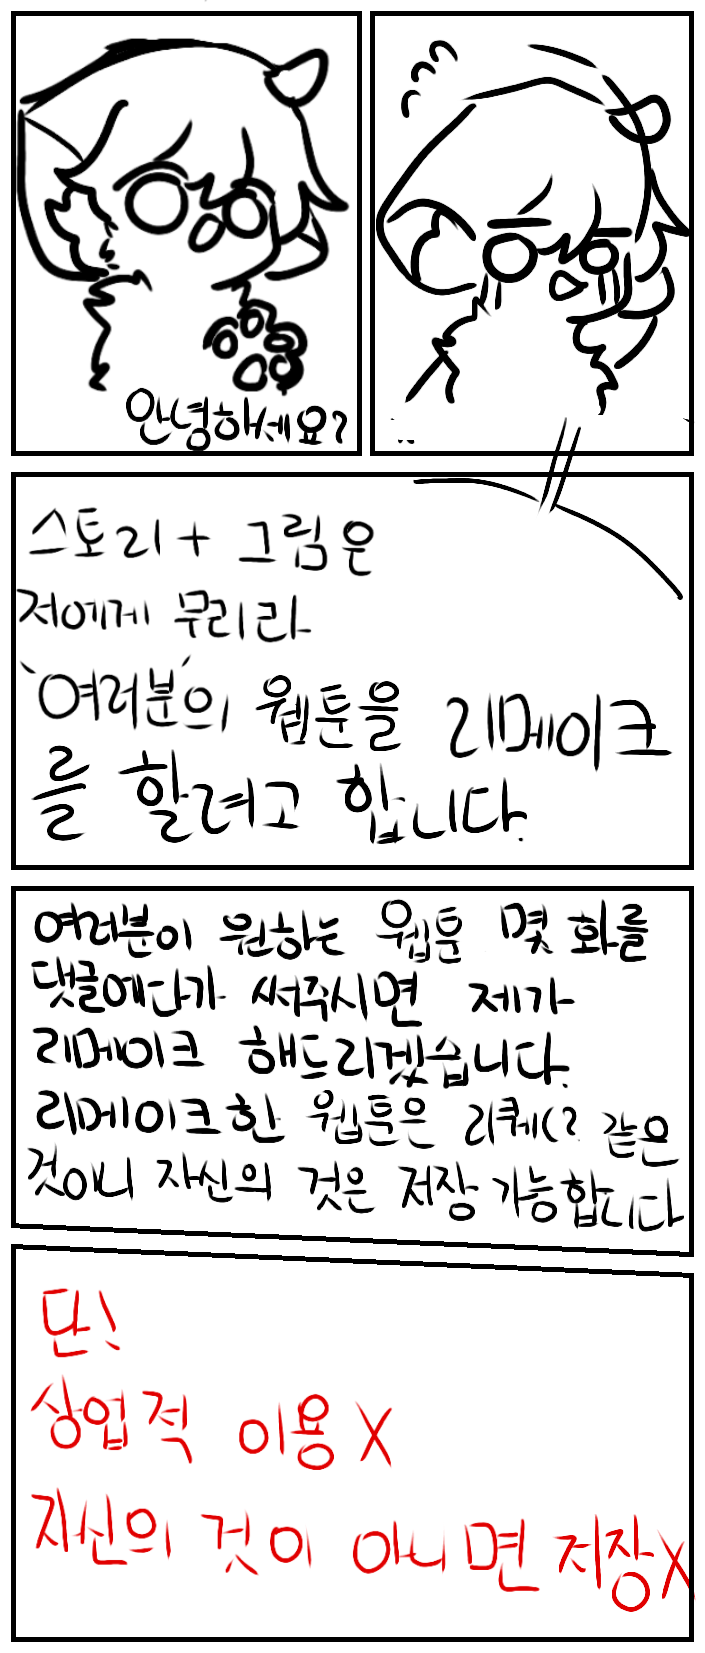 안녕하세요?
스토리+ 그림은
저에게 무리라
'여러분'의 웹툰을 리메이크
를 할려고 합니다.
여러분이 원하는 웹툰 몇 화를
댓글에다가 써주시면 제가
리메이크 해드리겠습니다.
리메이크한 웹툰은 리퀘(? 같은
것이니 자신의 것은 저장 가능합니다
단!
상업적 이용 X
자신의 것이 아니면 저장X